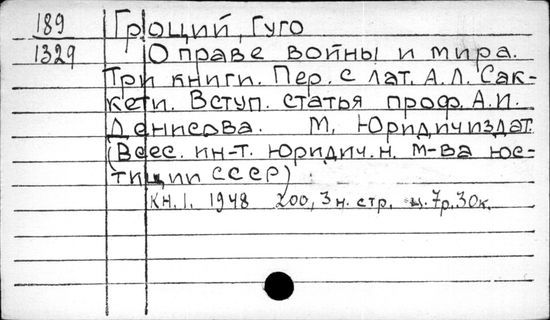 189 Гроций, Гуго
1329 О праве войны и мира.
Три книги. Пер. с лат. А.Л. Сак-
кети. Вступ. статья проф. А.И.
Денисова. М. Юридичиздат.
(Всес. ин-т. юридич. н. м-ва юс-
тиции СССР)
Кн. 1. 1948 200, 3 н. стр. ц. 7р. 30к.